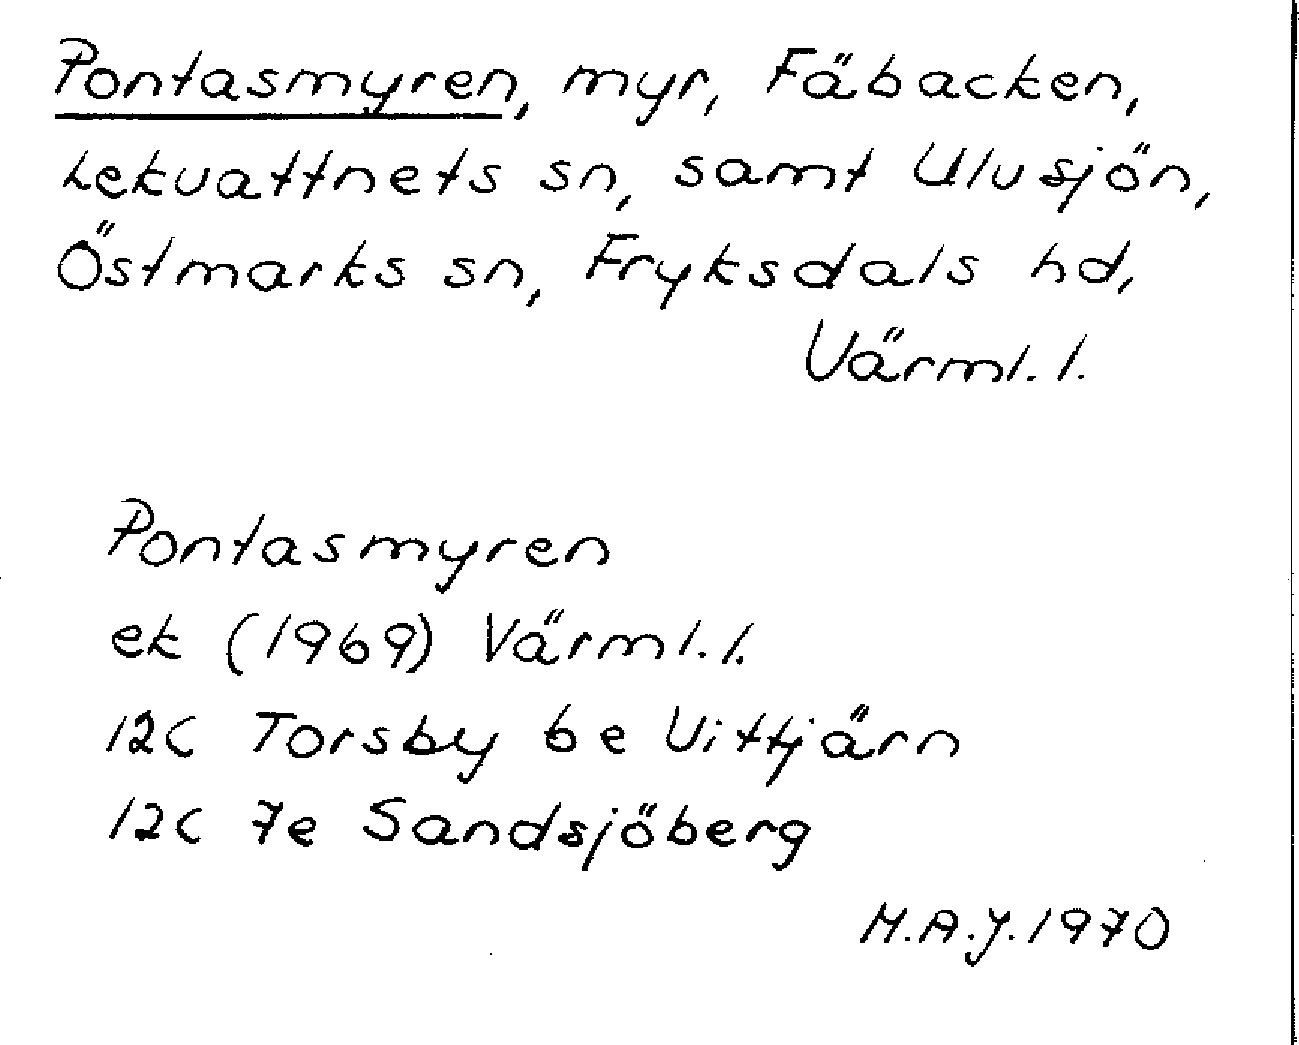 Pontasmyren, myr, Fäbacken,
Lekvattnets sn, samt Ulvsjön,
Östmarks sn, Fryksdals hd,
Värml. l.
Pontasmyren
ek (1969) Värml. l.
12C Torsby 6e Vittjärn
12C 7e Sandsjöberg
M.A.J. 1970